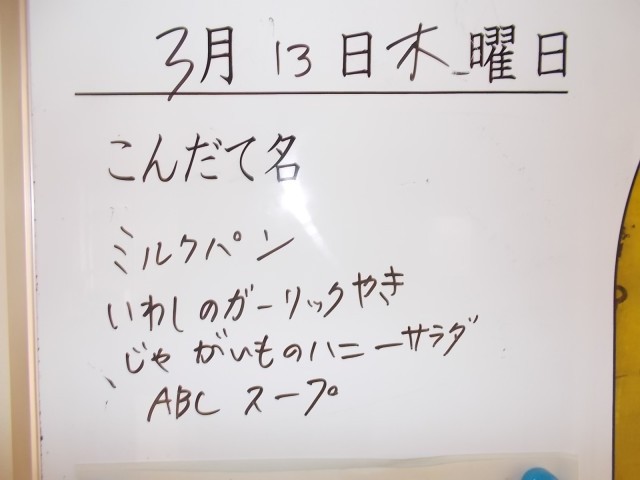 3月13日木曜日
こんだて名
ミルクパン
いわしのガーリックやき
じゃがいものハニーサラダ
ABCスープ